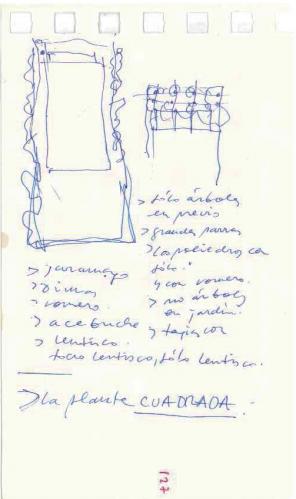 > sólo árboles
en previo
> grandes parras
> Las poliedros con
sólo."
y con romero.
> no árboles
en jardín.
> tapias con
> jaramago
> 
> romero.
> acebuche
> lentisco.
todo lentisco, sólo lentisco.
> La planta CUADRADA.
127